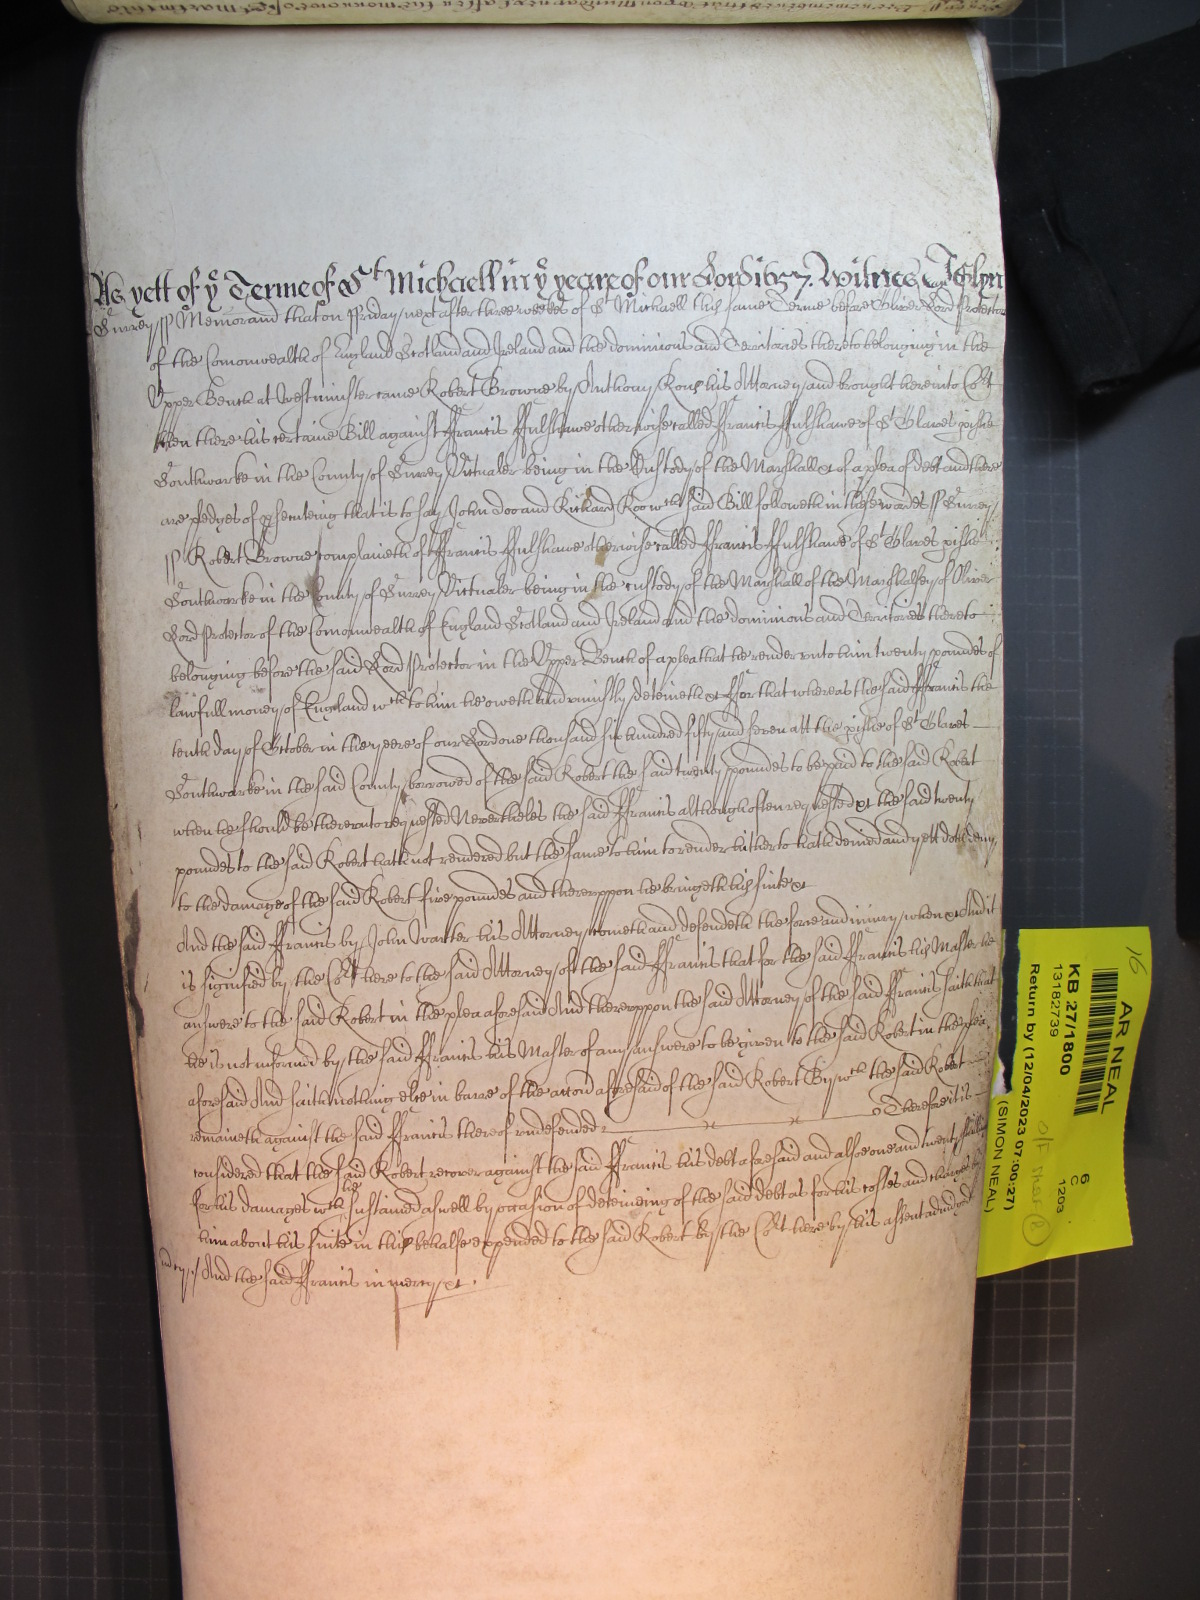 As yett of yͤ Terme of Sᵗ Michaell in yͤ yeare of our Lord 1657. Witnes J Glyn
Surrey ss Memorand that on Ffriday next after three weekes of Sᵗ Michaell this same Terme before Oliver Lord Protector
of the Comonwealth of England Scotland and Ireland and the dominions and Territories thereto belonging in the
Upper Bench at Westminster came Robert Browne by Anthony Rous his Attorney and brought here into Coʳt
then there his certaine Bill against Ffrancis Ffulshawe otherwise called Ffrancis Ffulshawe of Sᵗ Olaves pishe
Southwarke in the County of Surrey Victualer being in the Custody of the Marshall &c of a plea of debt and there
are pledges of psecuteing that is to say John Doo and Richard Roo wᶜʰ said Bill followeth in these wordes ss Surrey
ss Robert Browne complaineth of Ffrancis Ffulshawe otherwise called Ffrancis Ffulshawe of Sᵗ Olaves pishe
Southwarke in the County of Surrey Victualer being in the custody of the Marshall of the Marshalsey of Oliver
Lord Protector of the Comonwealth of England Scotland and Ireland and the dominions and Territories thereto
belonging before the said Lord Protector in the Upper Bench of a plea that he render unto him twenty poundes of
lawfull money of England wᶜʰ to him he oweth and uniustly deteineth &c Ffor that whereas the said Ffrancis the
tenth day of October in the yeere of our Lord one thousand six hundred fifty and seven att the pishe of Sᵗ Olaves
Southwarke in the said County borrowed of the said Robert the said twenty poundes to be paid to the said Robert
when he should be thereunto requested Nevertheles the said Ffrancis although often requested &c the said twenty
poundes to the said Robert hath not rendered but the same to him to render hitherto hath denied and yett doth deny
to the damage of the said Robert five poundes and thereuppon he bringeth his suite &c
And the said Ffrancis by John Warter his Attorney cometh and defendeth the force and iniury when &c And it
is signified by the Coʳt here to the said Attorney of the said Ffrancis that for the said Ffrancis his Master he
answere to the said Robert in the plea aforesaid And thereuppon the said Attorney of the said Ffrancis saith that
he is not informed by the said Ffrancis his Master of any answere to be given to the said Robert in the plea
aforesaid And saith nothing else in barre of the accon aforesaid of the said Robert By wᶜʰ the said Robert
remaineth against the said Ffrancis thereof undefended Therefore it is
considered that the said Robert recover against the said Ffrancis his debt aforesaid and alsoe one and twenty shillings
for his damages wᶜʰ he sustained aswell by occasion of deteineing of the said debt as for his costes and charges by
him about his suite in this behalfe expended to the said Robert by the Coʳt here by his assent adiudged
mercy And the said Ffrancis in mercy &c
16
AR NEAL
KB 27/1800
13182739
Return by (12/04/2023 07:00:27)
(SIMON NEAL)
6
C
1203